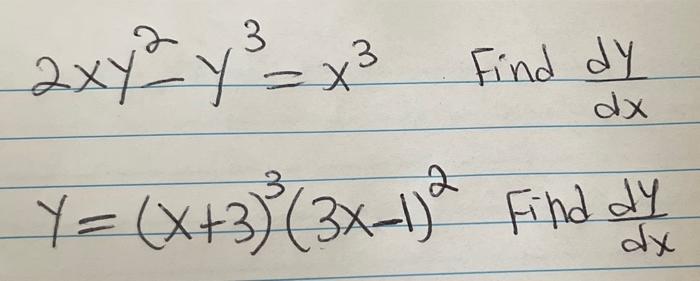 2xy² - y³ = x³ Find dy/dx
Y = (x+3)³(3x-1)² Find dy/dx